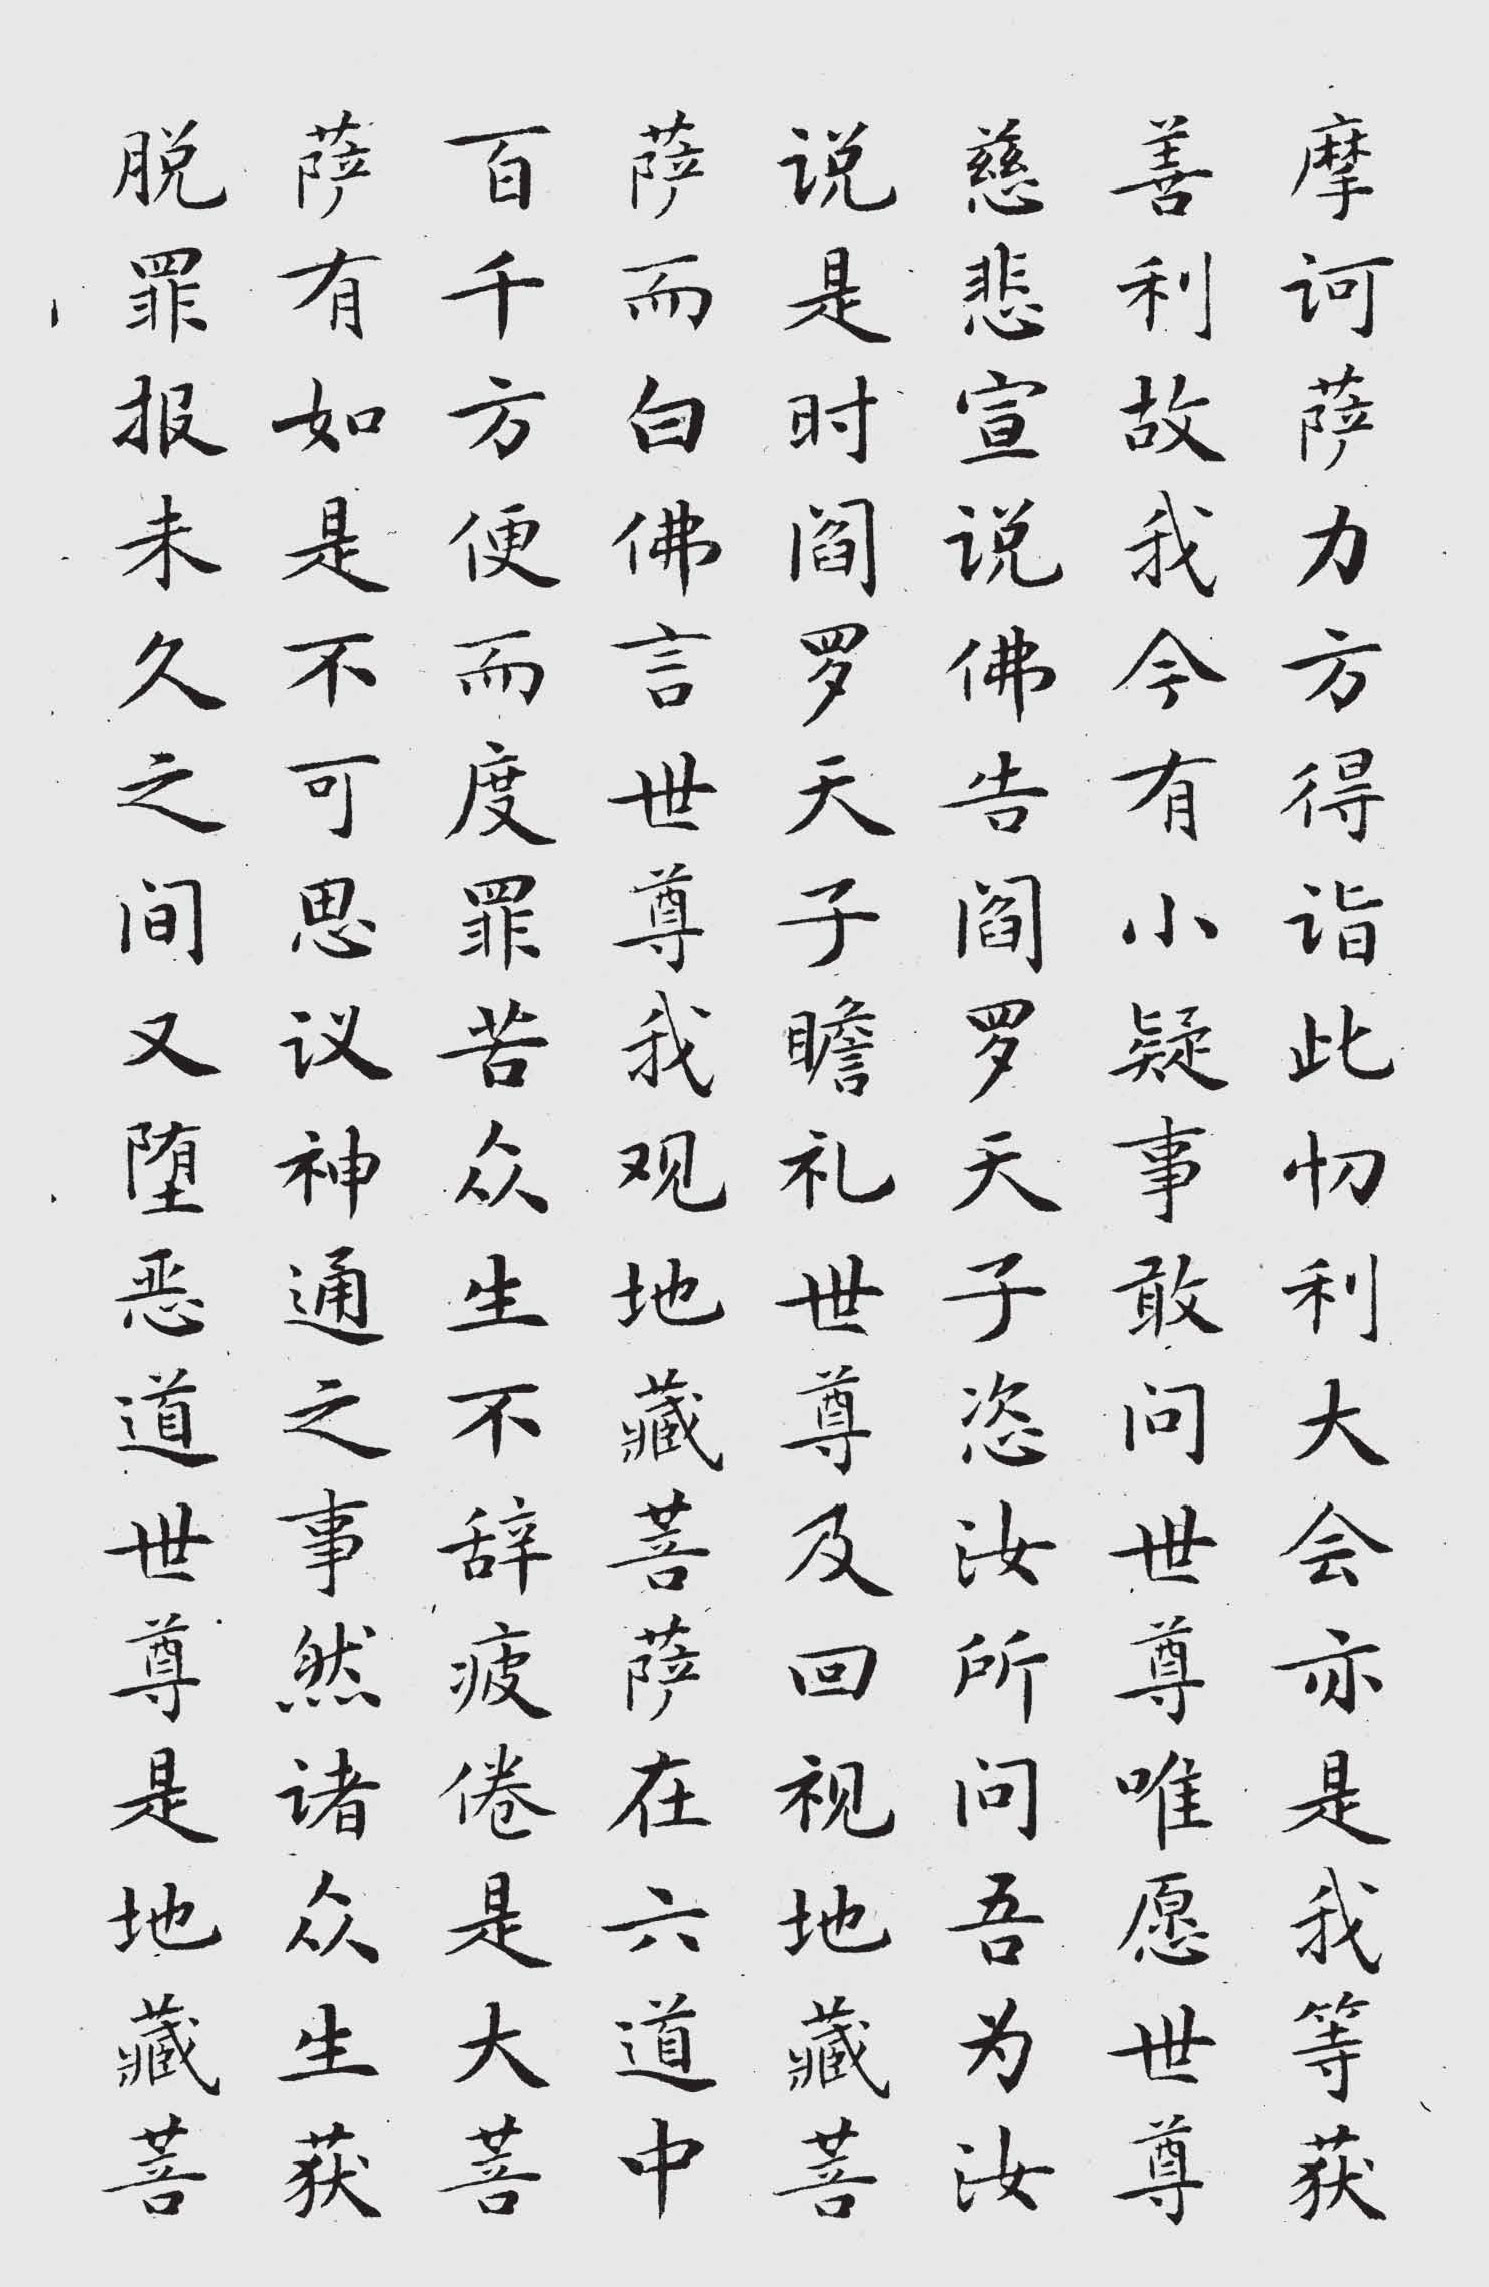 摩诃萨力方得诣此忉利大会亦是我等获
善利故我今有小疑事敢问世尊唯愿世尊
慈悲宣说佛告阎罗天子恣汝所问吾为汝
说是时阎罗天子瞻礼世尊及回视地藏菩
萨而白佛言世尊我观地藏菩萨在六道中
百千方便而度罪苦众生不辞疲倦是大菩
萨有如是不可思议神通之事然诸众生获
脱罪报未久之间又堕恶道世尊是地藏菩